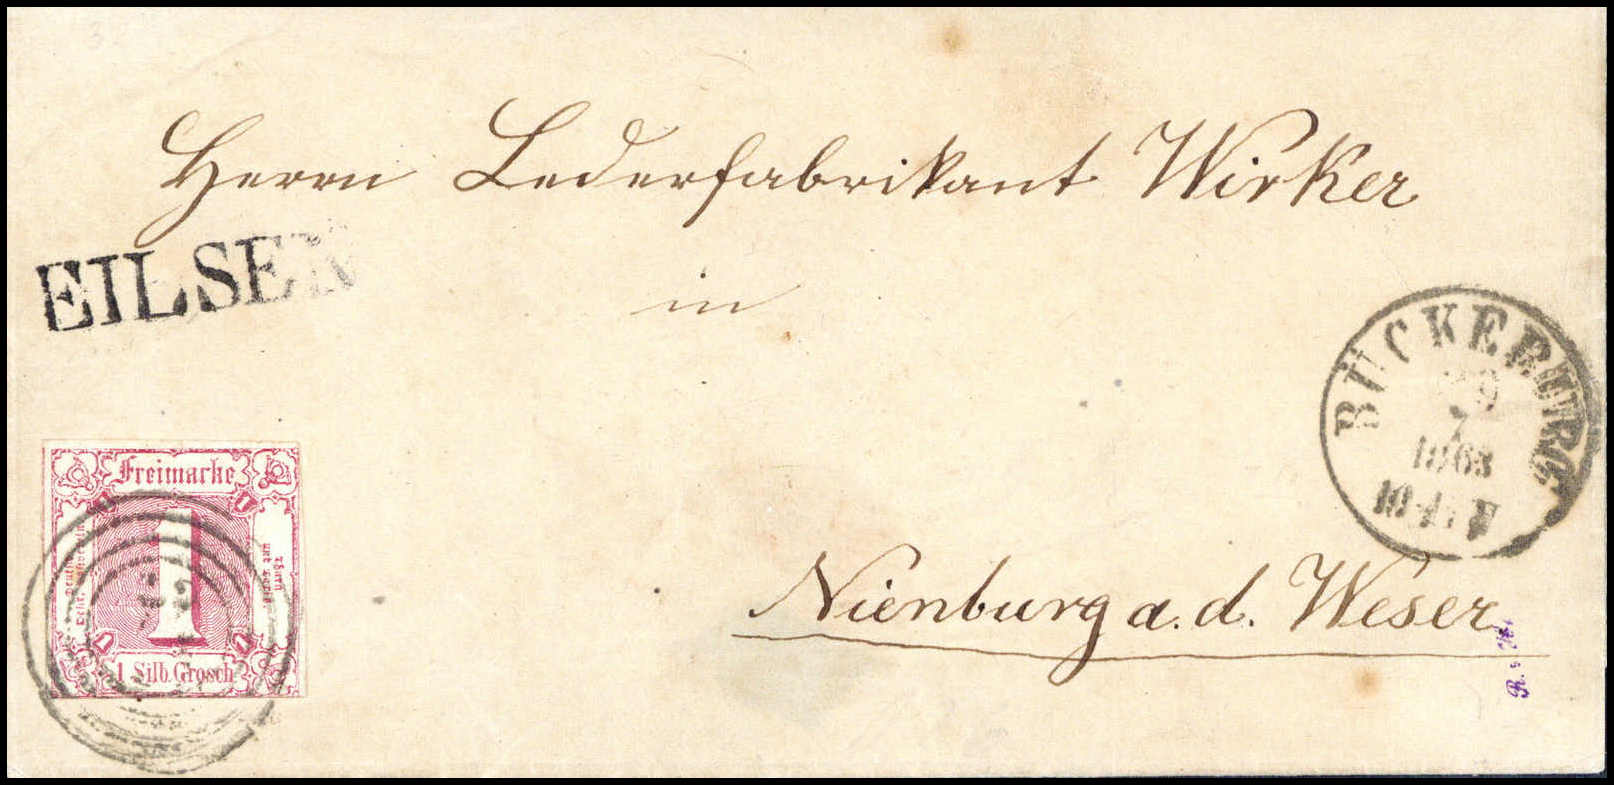 Herrn Lederfabrikant Wirker
EILSEN
in
BÜCKEBURG
29
7
1863
Freimarke
1
Thurn
und Taxis
1 Silb. Grosch
Nienburg a. d. Weser